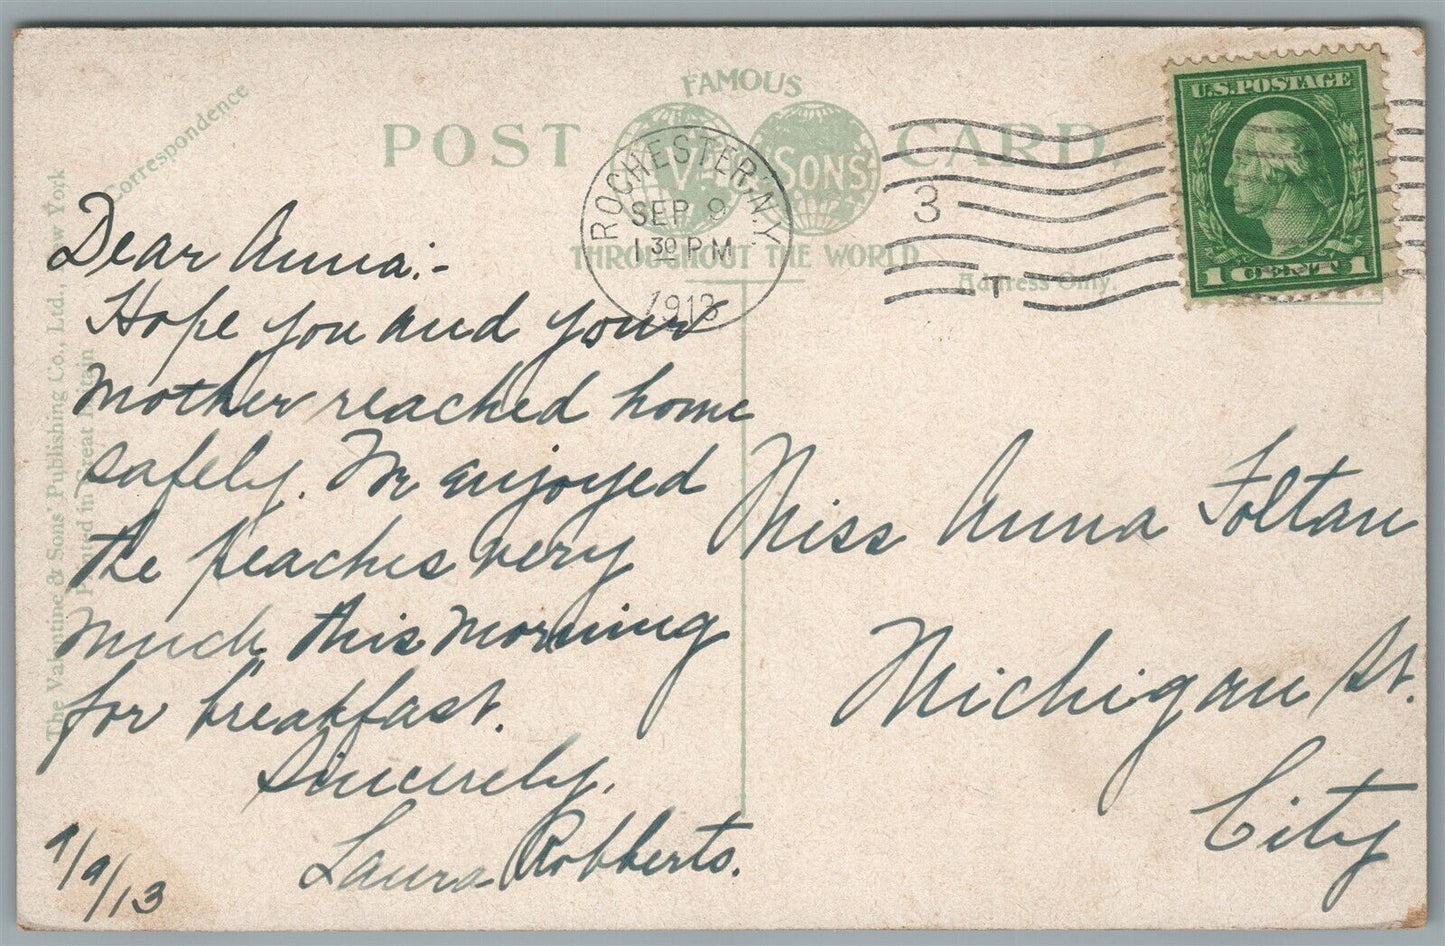 Correspondence
FAMOUS
POST CARD.
V & SONS
THROUGHOUT THE WORLD
Address Only.
The Valentine & Sons' Publishing Co., Ltd., New York
Printed in Great Britain
ROCHESTER, N.Y.
SEP 9
1 30 PM
1913
3
T
U.S. POSTAGE
1 CENT 1
Dear Anna:-
Hope you and your
Mother reached home
safely. We enjoyed
the peaches very
much this morning
for breakfast.
Sincerely,
Laura Robberts.
9/9/13
Miss Anna Foltan
Michigan St.
City